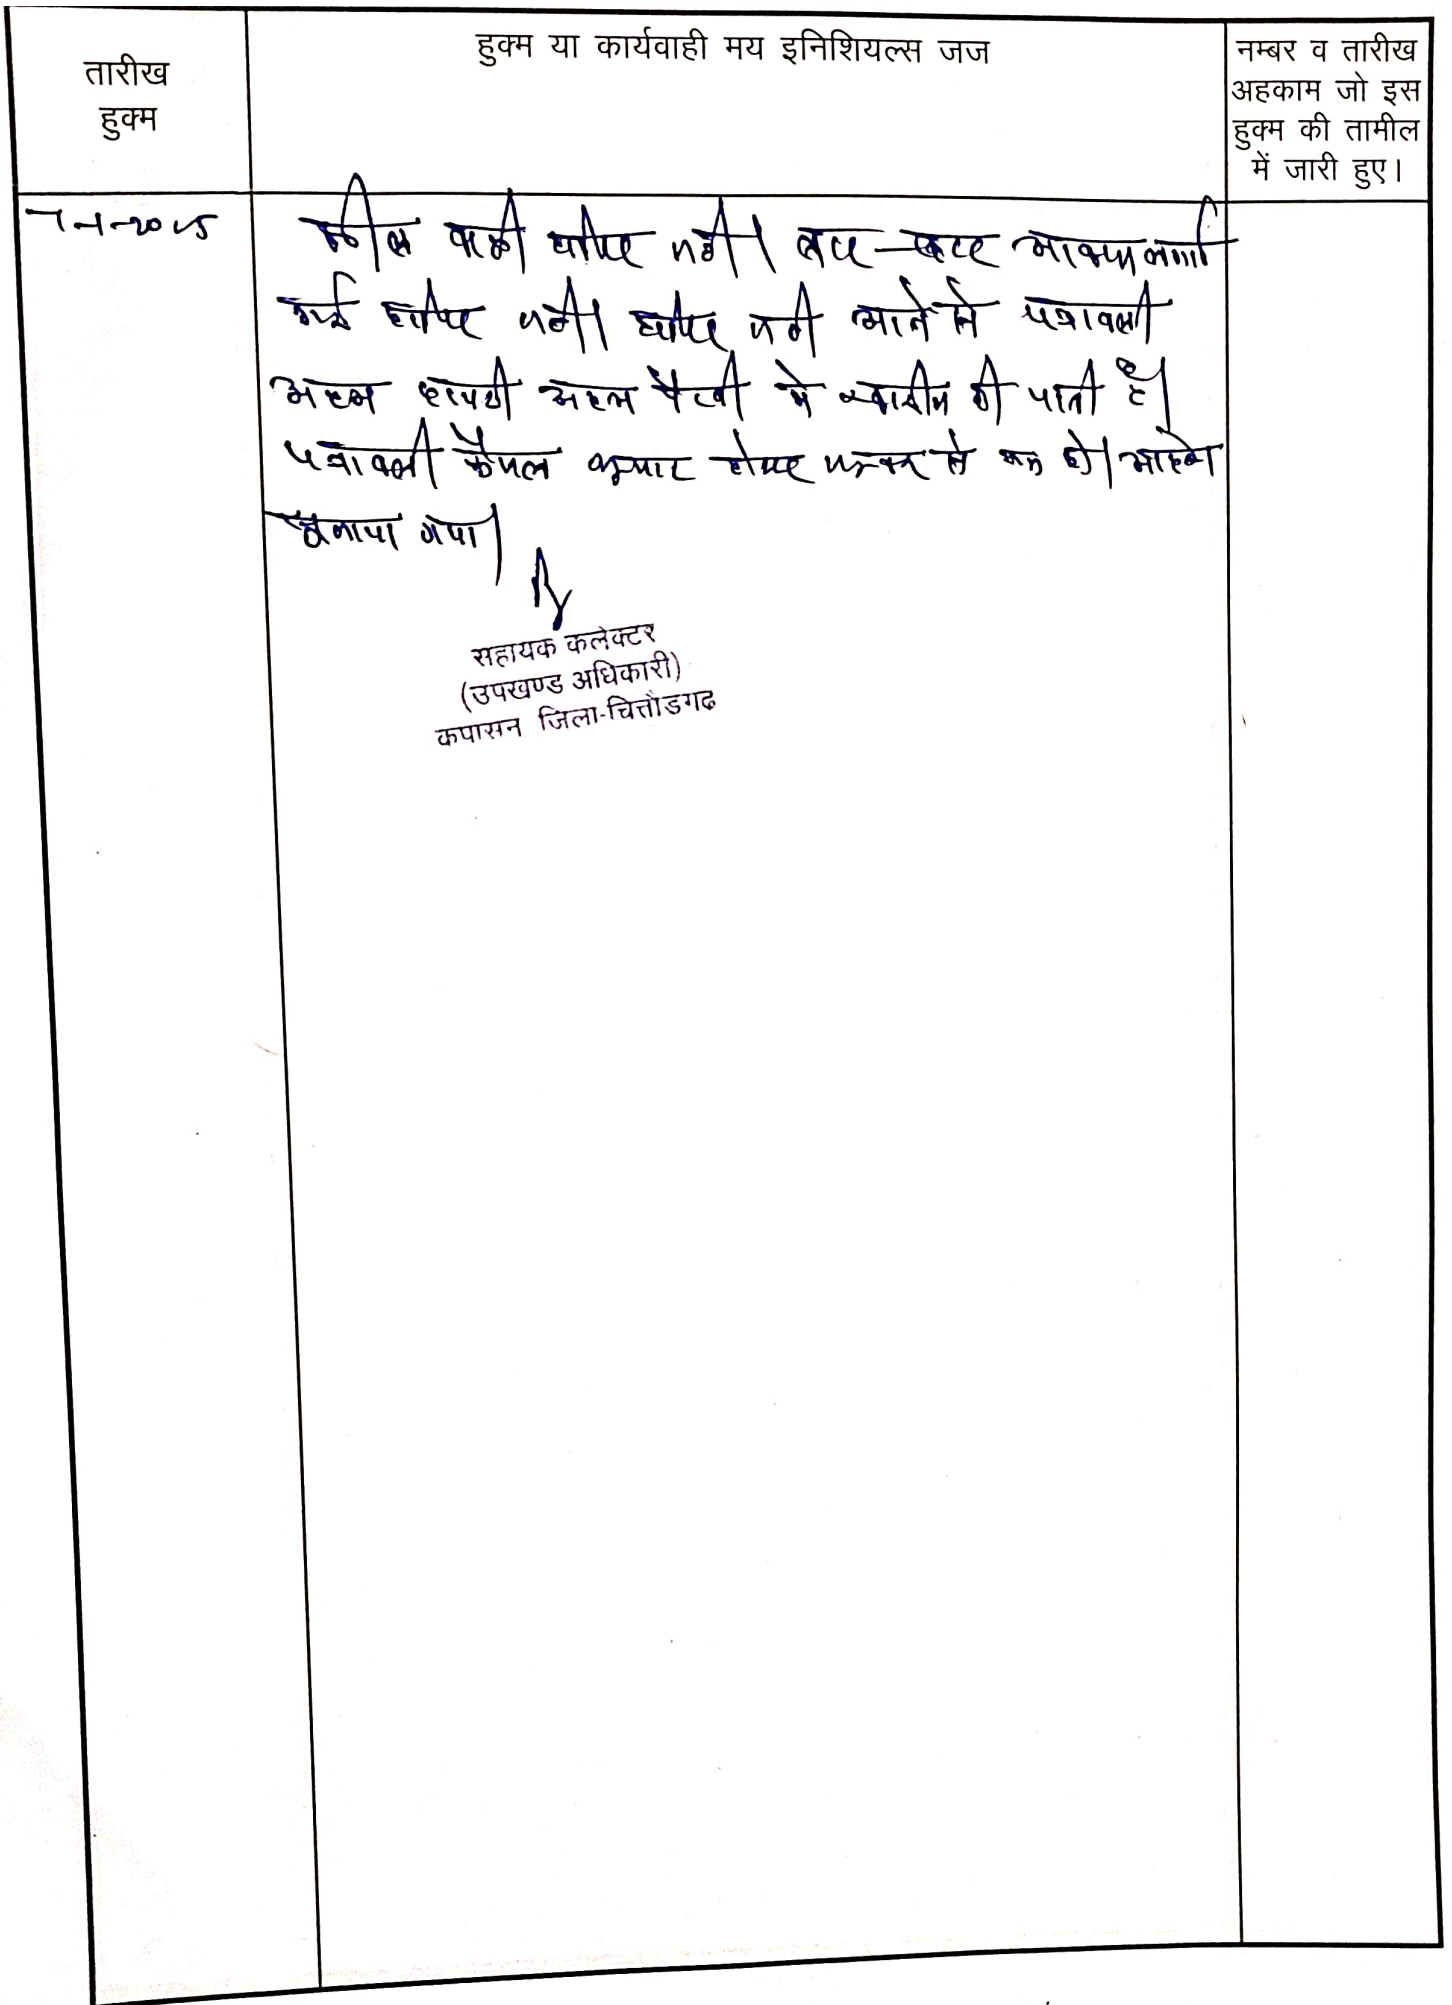 तारीख
हुक्म
हुक्म या कार्यवाही मय इनिशियल्स जज
नम्बर व तारीख
अहकाम जो इस
हुक्म की तामील
में जारी हुए।
वादी हाजिर नही। बार-बार आवाज लगाई
गई हाजिर नही। हाजिर नही आने से पत्रावली
अदम हाजरी अदम पैरवी मे खारीज की जाती है।
पत्रावली फैसल शुमार होकर नम्बर से कम हो। आदेश
सुनाया गया।
सहायक कलेक्टर
(उपखण्ड अधिकारी)
कपासन जिला-चित्तौडगढ